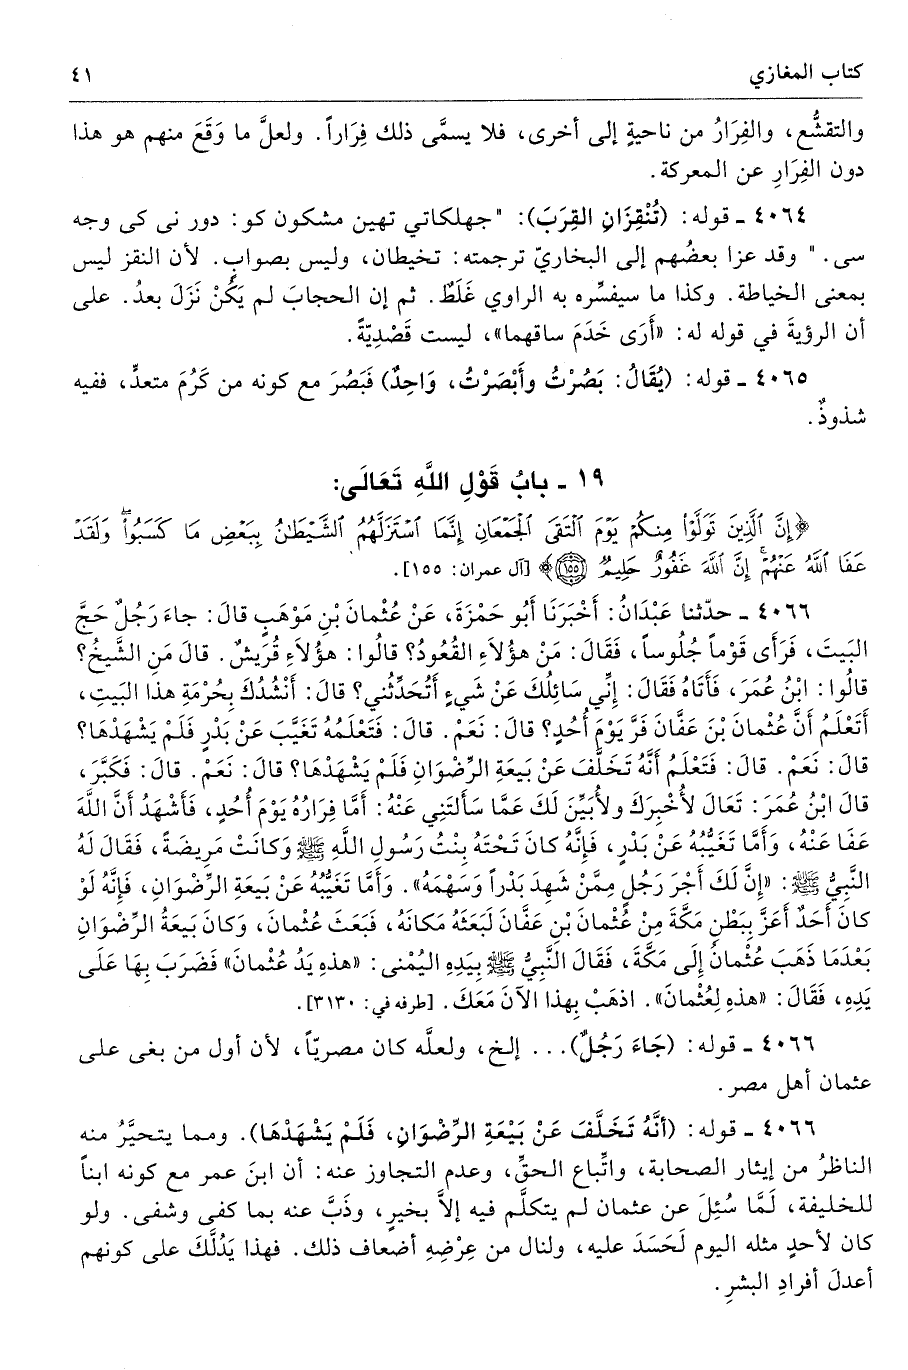 كتاب المغازي ٤١
والتقشُّع، والفِرَارُ من ناحيةٍ إلى أخرى، فلا يسمَّى ذلك فِرَاراً. ولعلَّ ما وَقَعَ منهم هو هذا
دون الفِرَارِ عن المعركة.
٤٠٦٤ ـ قوله: (تُنْقِزَانِ القِرَبَ): "جهلكاتي تهين مشكون كو: دور نى كى وجه
سى." وقد عزا بعضُهم إلى البخاريّ ترجمته: تخيطان، وليس بصوابٍ. لأن النقز ليس
بمعنى الخياطة. وكذا ما سيفسِّره به الراوي غَلَطٌ. ثم إن الحجابَ لم يَكُنْ نَزَلَ بعدُ. على
أن الرؤيةَ في قوله له: «أَرَى خَدَمَ ساقهما»، ليست قَصْدِيّةً.
٤٠٦٥ ـ قوله: (يُقَالُ: بَصُرْتُ وأَبْصَرْتُ، وَاحِدٌ) فَبَصُرَ مع كونه من كَرُمَ متعدٍّ، ففيه
شذوذٌ.
١٩ ـ بابُ قَوْلِ اللَّهِ تَعَالَى:
﴿إِنَّ ٱلَّذِينَ تَوَلَّوْا۟ مِنكُمْ يَوْمَ ٱلْتَقَى ٱلْجَمْعَانِ إِنَّمَا ٱسْتَزَلَّهُمُ ٱلشَّيْطَـٰنُ بِبَعْضِ مَا كَسَبُوا۟ۖ وَلَقَدْ
عَفَا ٱللَّهُ عَنْهُمْۗ إِنَّ ٱللَّهَ غَفُورٌ حَلِيمٌ ١٥٥﴾ [آل عمران: ١٥٥].
٤٠٦٦ ـ حدّثنا عَبْدَانُ: أَخْبَرَنَا أَبُو حَمْزَةَ، عَنْ عُثْمانَ بْنِ مَوْهَبٍ قالَ: جاءَ رَجُلٌ حَجَّ
البَيتَ، فَرَأَى قَوْماً جُلُوساً، فَقَالَ: مَنْ هؤُلَاءِ القُعُودُ؟ قالُوا: هؤُلَاءِ قُرَيشٌ. قالَ مَنِ الشَّيخُ؟
قالُوا: ابْنُ عُمَرَ، فَأَتَاهُ فَقَالَ: إِنِّي سَائِلُكَ عَنْ شَيءٍ أَتُحَدِّثُني؟ قالَ: أَنْشُدُكَ بِحُرْمَةِ هذا البَيتِ،
أَتَعْلَمُ أَنَّ عُثْمانَ بْنَ عَفَّانَ فَرَّ يَوْمَ أُحُدٍ؟ قالَ: نَعَمْ. قالَ: فَتَعْلَمُهُ تَغَيَّبَ عَنْ بَدْرٍ فَلَمْ يَشْهَدْهَا؟
قالَ: نَعَمْ. قالَ: فَتَعْلَمُ أَنَّهُ تَخَلَّفَ عَنْ بَيعَةِ الرِّضْوَانِ فَلَمْ يَشْهَدْهَا؟ قالَ: نَعَمْ. قالَ: فَكَبَّرَ،
قالَ ابْنُ عُمَرَ: تَعَالَ لأُخْبِرَكَ ولأُبَيِّنَ لَكَ عَمَّا سَأَلتَنِي عَنْهُ: أَمَّا فِرَارُهُ يَوْمَ أُحُدٍ، فَأَشْهَدُ أَنَّ اللَّهَ
عَفَا عَنْهُ، وَأَمَّا تَغَيُّبُهُ عَنْ بَدْرٍ، فَإِنَّهُ كانَ تَحْتَهُ بِنْتُ رَسُولِ اللَّهِ ﷺ وَكانَتْ مَرِيضَةً، فَقَالَ لَهُ
النَّبِيُّ ﷺ: «إِنَّ لَكَ أَجْرَ رَجُلٍ مِمَّنْ شَهِدَ بَدْراً وَسَهْمَهُ». وَأَمَّا تَغَيُّبُهُ عَنْ بَيعَةِ الرِّضْوَانِ، فَإِنَّهُ لَوْ
كانَ أَحَدٌ أَعَزَّ بِبَطْنِ مَكَّةَ مِنْ عُثْمانَ بْنِ عَفَّانَ لَبَعَثَهُ مَكانَهُ، فَبَعَثَ عُثْمانَ، وَكانَ بَيعَةُ الرِّضْوَانِ
بَعْدَمَا ذَهَبَ عُثْمانُ إِلَى مَكَّةَ، فَقَالَ النَّبِيُّ ﷺ بِيَدِهِ اليُمْنى: «هذهِ يَدُ عُثْمانَ» فَضَرَبَ بِهَا عَلَى
يَدِهِ، فَقَالَ: «هذهِ لِعُثْمانَ». اذهَبْ بِهذا الآنَ مَعَكَ. [طرفه في: ٣١٣٠].
٤٠٦٦ ـ قوله: (جَاءَ رَجُلٌ)... إلخ، ولعلَّه كان مصريّاً، لأن أول من بغى على
عثمان أهل مصر.
٤٠٦٦ ـ قوله: (أنَّهُ تَخَلَّفَ عَنْ بَيْعَةِ الرِّضْوَانِ، فَلَمْ يَشْهَدْهَا). ومما يتحيَّرُ منه
الناظرُ من إيثار الصحابة، واتِّباع الحقِّ، وعدم التجاوز عنه: أن ابنَ عمر مع كونه ابناً
للخليفة، لَمَّا سُئِلَ عن عثمان لم يتكلَّم فيه إلاَّ بخيرٍ، وذَبَّ عنه بما كفى وشفى. ولو
كان لأحدٍ مثله اليوم لَحَسَدَ عليه، ولنال من عِرْضِهِ أضعاف ذلك. فهذا يَدُلُّكَ على كونهم
أعدلَ أفرادِ البشرِ.